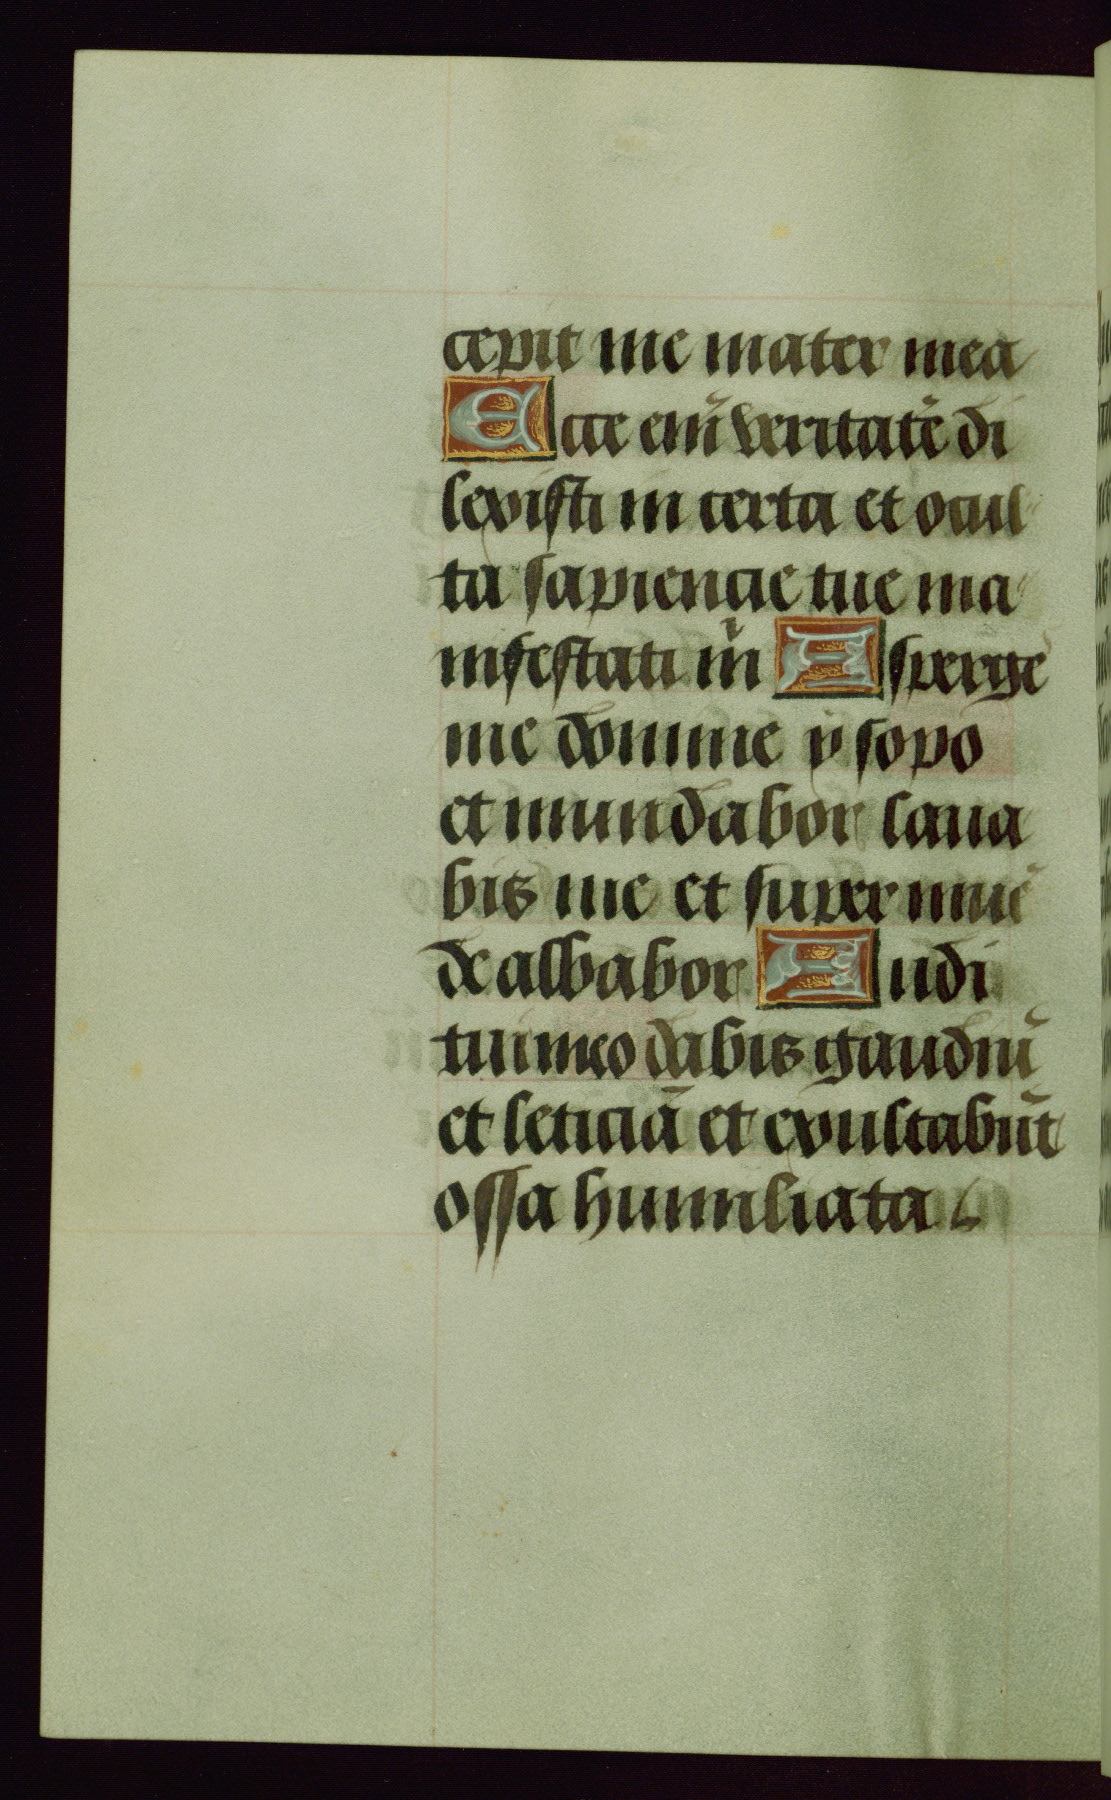 cepit me mater mea
Ecce eni͂ veritate͂ di
lexisti in certa et ocul
ta sapiencie tue ma
nifestati m͂ Asperge
me domine ysopo
et mundabor laua
bis me et super niue͂
de albabor Audi
tui meo dabis gaudiu͂
et leticia͂ et exultabu͂t
ossa humiliata